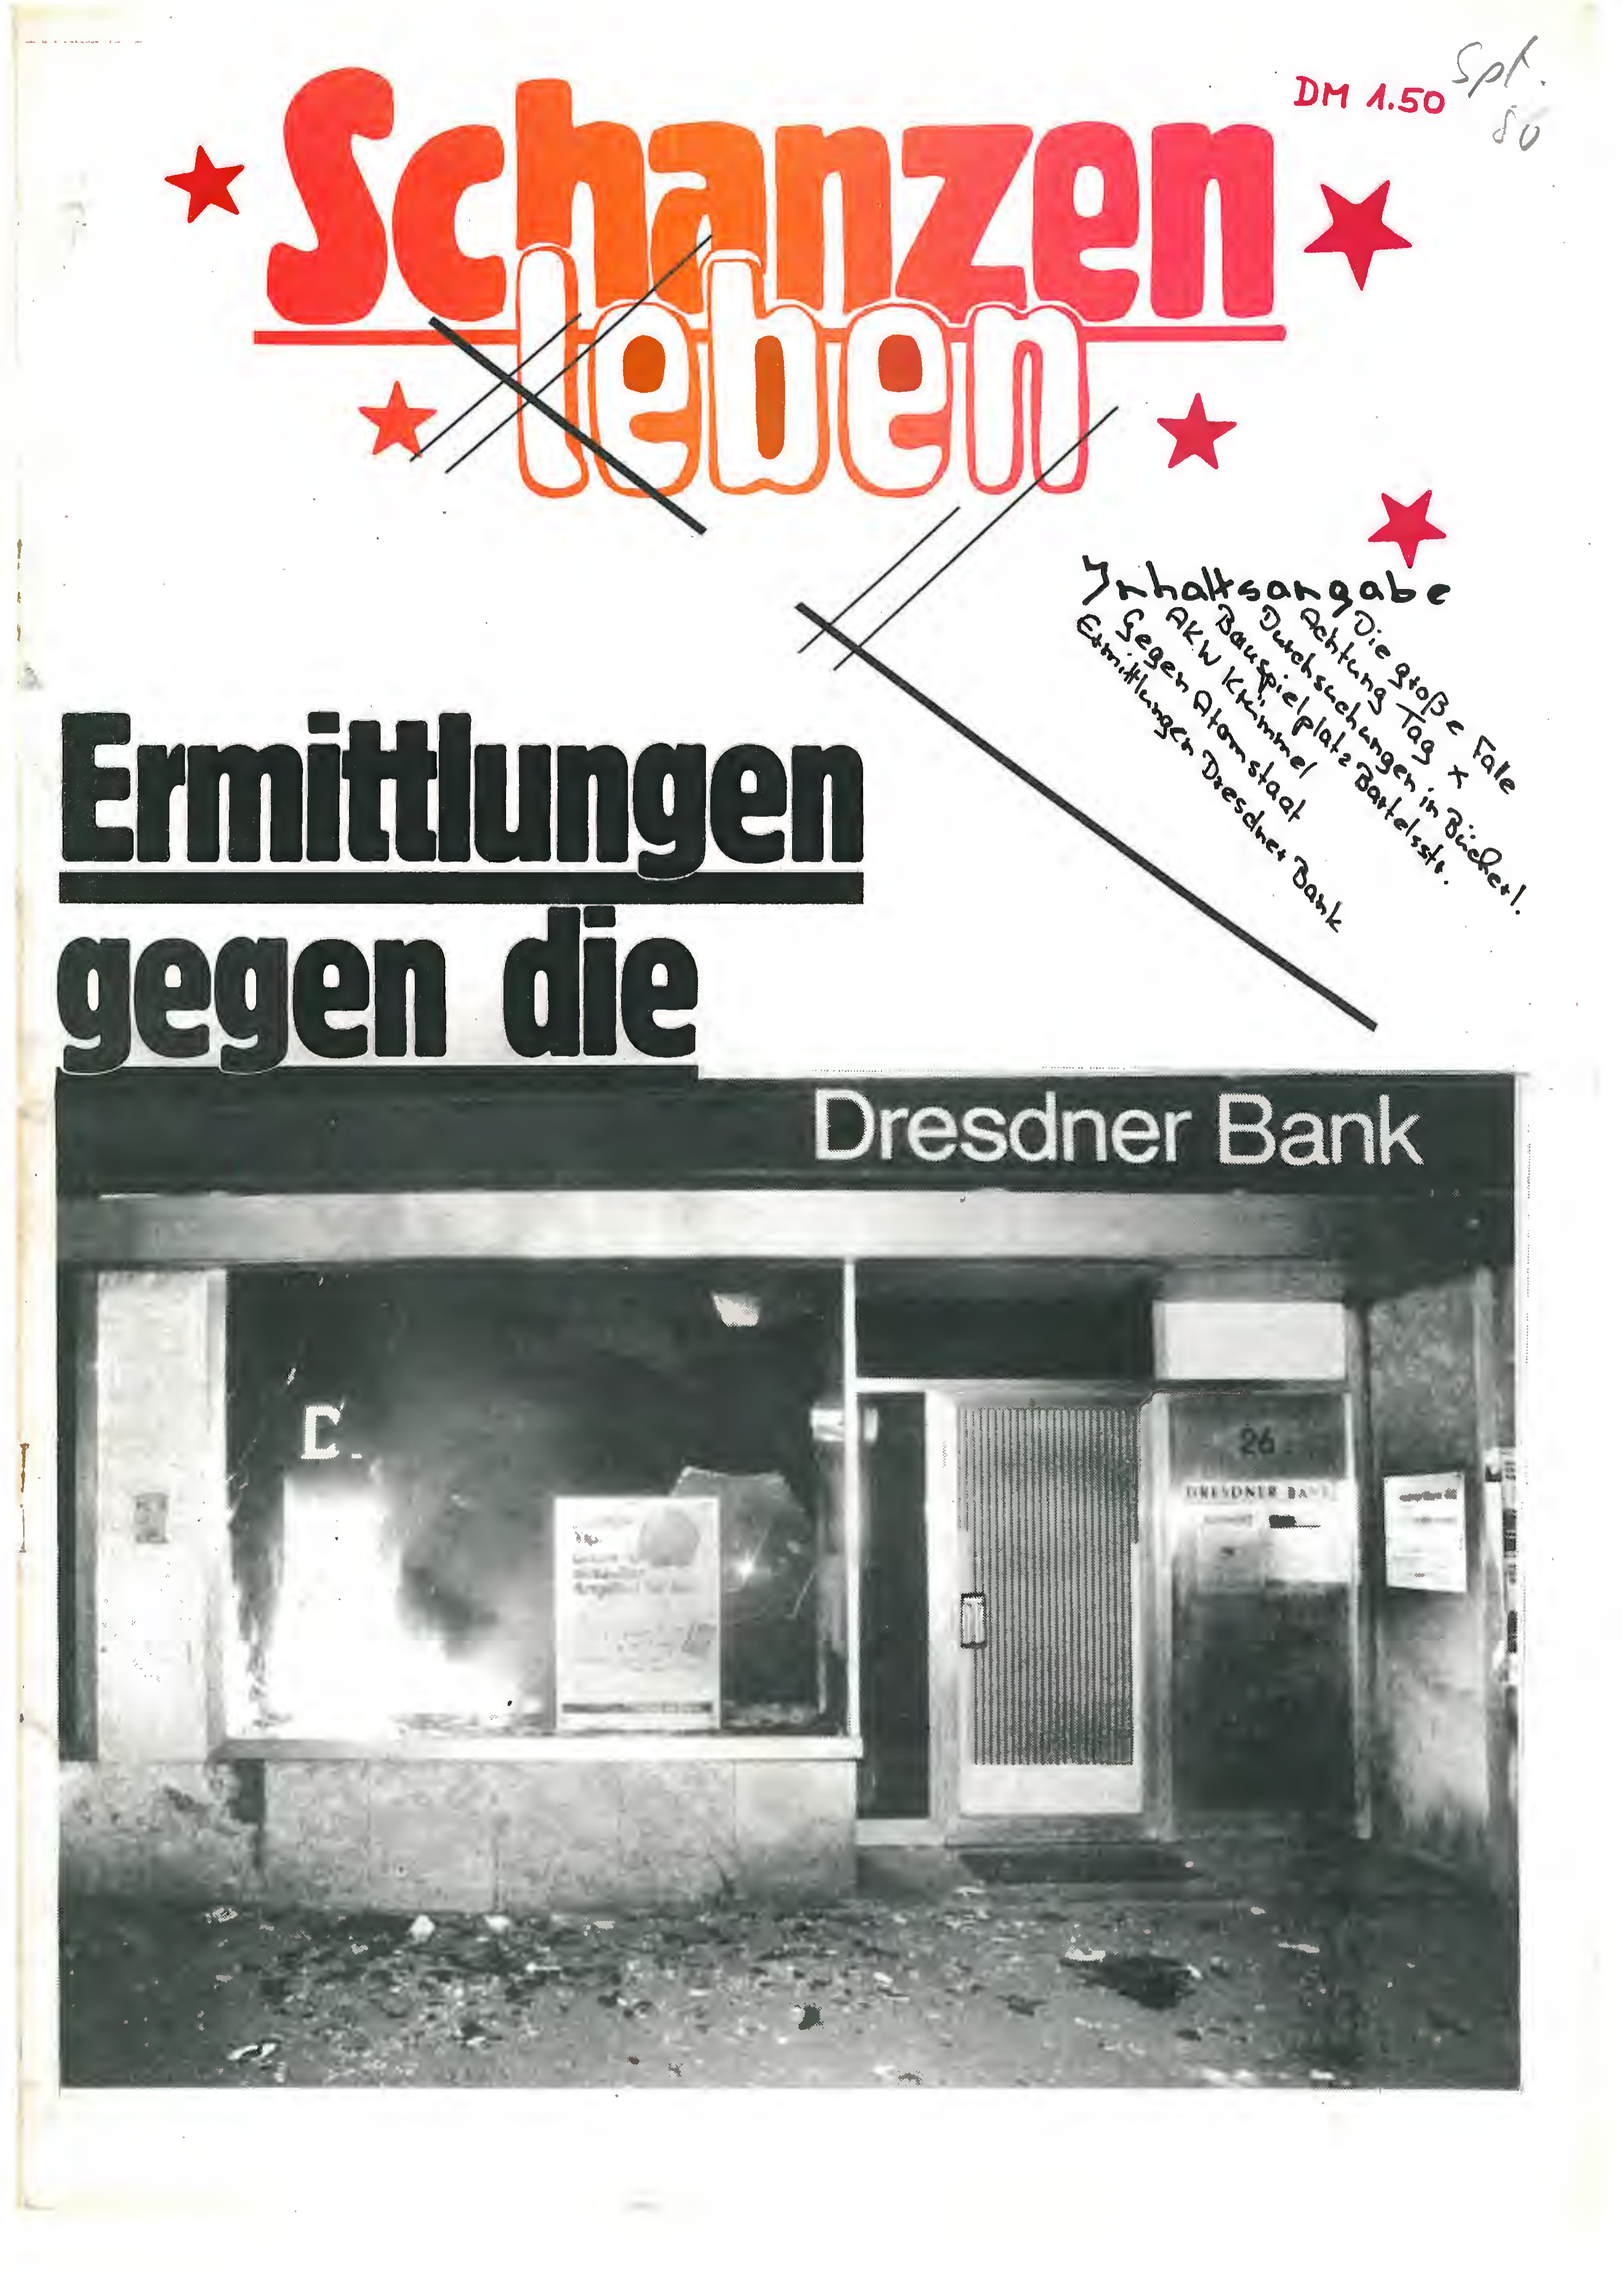 DM 1.50
Spt.
80
Schanzen
leben
Inhaltsangabe
Die große Falle
Achtung Tag X
Durchsuchungen in Bücherl.
Bauspielplatz Bartelsstr.
AKW Krümmel
Gegen Atomstaat
Ermittlungen Dresdner Bank
Ermittlungen
gegen die
Dresdner Bank
D
26
DRESDNER BANK